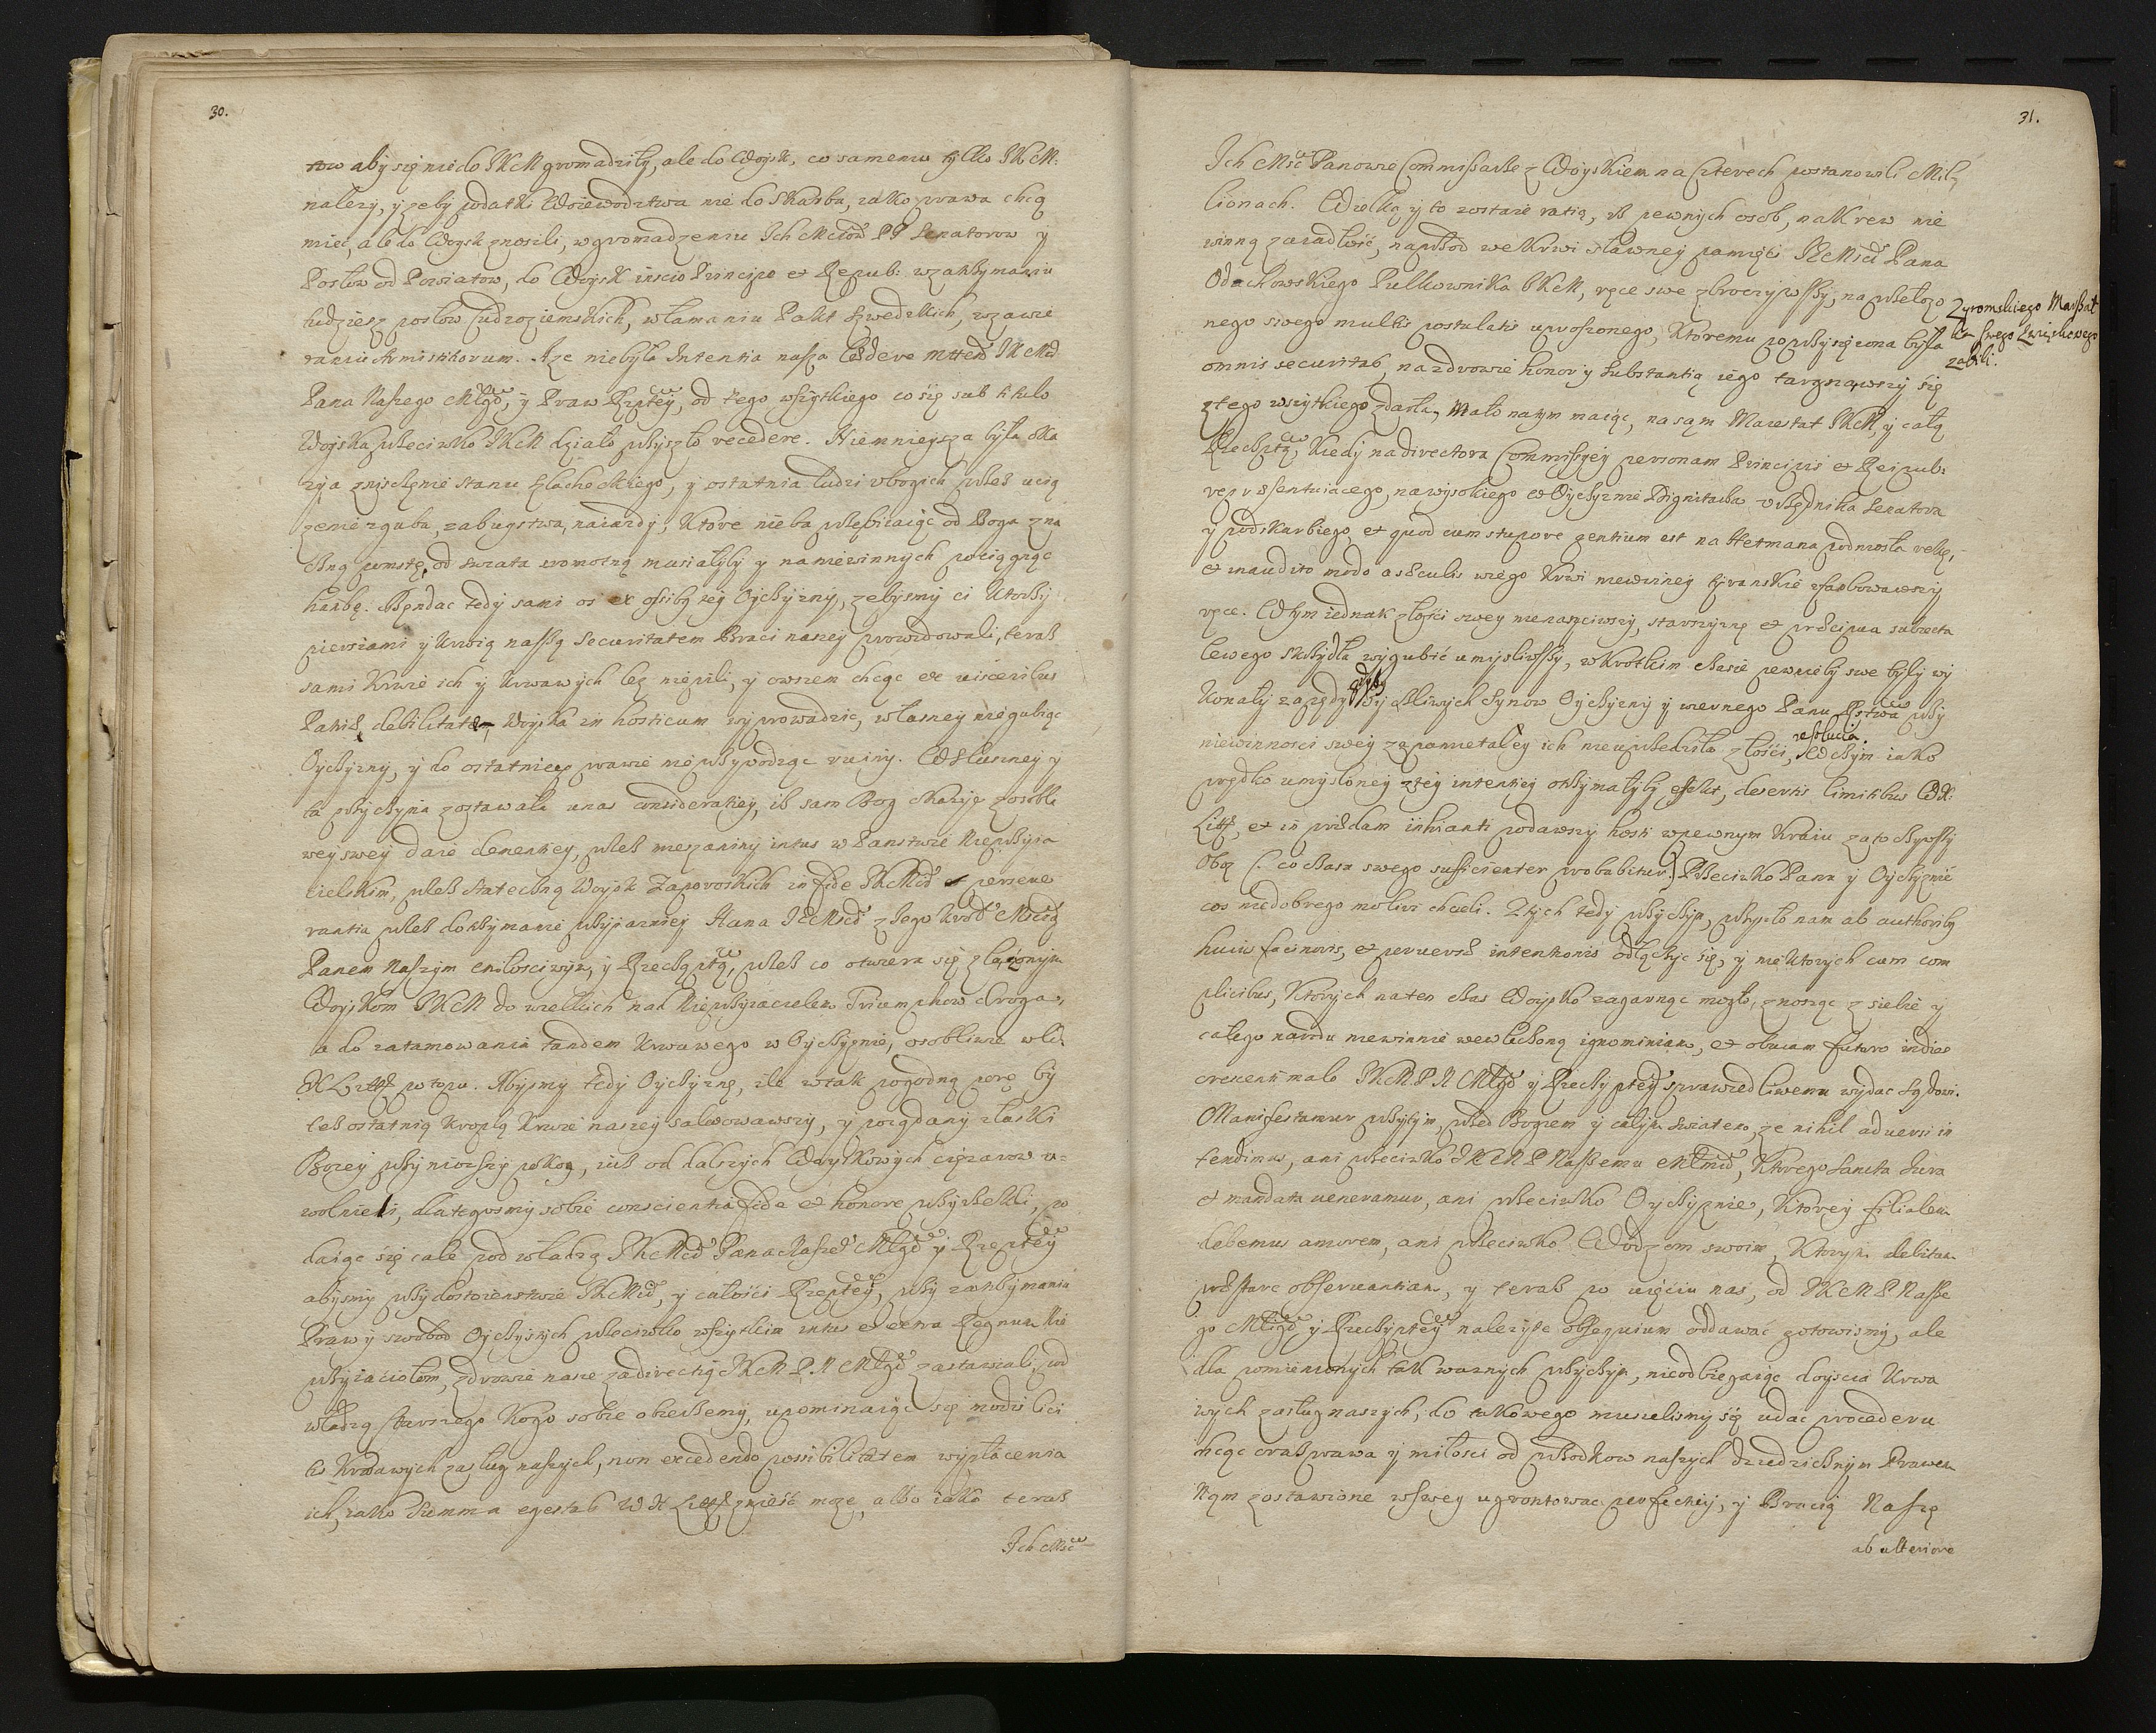 30.
tow aby się nie do JKcM gromadziły, ale do Woysk, co samemu tylko JKcM:
nalezy, y zeby podatki Woiewodztwa nie do Skarbu, iako prawa chcą
miec, ale do Woysk znosili, w gromadzeniu Ich Mciow PP Senatorow y
Posłow od Powiatow, do Woysk inscio Principe et Repub: w zatrzymaniu
tudziesz posłow Cudzoziemskich, w łamaniu Pakt Szwedzkich, w zawie
raniu Armistitiorum. A ze nie była Intentia nasza lædere JKcMci
Pana Naszego Młgo, y Praw Rzptey, od tego wszytkiego co się sub titulo
Woyska przeciwko JKcM działo przyszło recedere. Niemnieysza była oka
zya zniszczenie stanu Szlacheckiego, y ostatnia ludzi vbogich przez ucią
zenie zguba, zabuystwa, naiazdy, ktore nieba przebiiaiąc od Boga zna
czną pomstę, od swiata sromotną musiałyby y na niewinnych pociągnąc
hanbę. Będąc tedy sami os ex ossibus tey Oyczyzny, zebysmy ci ktorzy
piersiami y krwią naszą Securitatem Braci naszey prowidowali, teraz
sami krwie ich y krwawych łez nie pili, y owszem chcąc ex visceribus
Patriæ debilitatæ Woyska in hosticum wyprowadzic, własney nie gubiąc
Oyczyzny, y do ostatniey prawie nie przywodząc ruiny. W słuszney y
ta przyczyna zostawała u nas consideratiey, iz sam Bog okazyę z osobli
wey swey daie clementiey, przez mieszaniny intus w Panstwie Nieprzyia
cielskim, przez stateczną Woysk Zaporoskich in fide JKcMci perseue
rantią przez dotrzymanie przyiazniey Hana JeMsci z Jego Krol Mscią
Panem Naszym Miłosciwym, y Rzecząptą, przez co otwiera się złączonym
Woyskom JKcM do wielkich nad Nieprzyiacielem Triumphow droga,
a do zatamowania tandem krwawego w Oyczyznie, osobliwie w W.
X Littt potopu. Abysmy tedy Oyczyznę, ile w tak pogodną porę by
tez ostatnią kroplą krwie naszey salwowawszy, y poządany z łaski
Bozey przyniozszy pokoy, iuz od dalszych Woyskowych cięzarow u-
wolnieli, dlategosmy sobie conscientia fide et honore przyrzekli, po
daiąc się cale pod władzą JKcMci Pana Naszeo Młgo y Rzeptey
abysmy przy dostoienstwie JKcMci, y całosci Rzeptey, przy zatrzymaniu
Praw y swobod Oyczystych przeciwko wszytkim intus et extra Regnum Nie
przyiaciołom, zdrowie nasze za directią JKcM P. N Młgo zastawiali, pod
władzą starszego kogo sobie obierzemy, upominaiąc się modis lici
tis krwawych zasług naszych, non excedendo possibilitatem wypłacenia
ich, iako Summa egestas W X Littt zniesc moze, albo iako teraz
Ich Mscie
31.
Ich Mscie Panowie Commissarze z Woyskiem na czterech postanowili Mil-
lionach. Wielką y to zostaie ratią, iz pewnych osob, na krew nie
winną zaiadłosc, naprzod we krwi sławney pamięci JeMsci Pana
Odachowskiego Pułkownika JKcM, ręce swe zbroczywszy, na przełozo
nego swego multis postulatis uproszonego, ktoremu poprzysięzona była
omnis securitas, na zdrowie honor y substantią iego targnąwszy się
z tego wszytkiego zdarła, Mało na tym maiąc, na sąm Maiestat JKcM, y całą
Rzeczptą, kiedy na directora Commissyey personam Principis et Reipub:
repræsentuiącego, na wysokiego w Oyczyznie Dignitarza vrzędnika Senatora
y podskarbiego, et quod cum stupore gentium est na Hetmana podniosła rękę,
et inaudito modo a sæculis w iego krwi niewinney tyranskie vfarbowawszy
ręce. W tym iednak złosci swey nienasyciwszy, starszyznę et præcipua subiecta
lewego skrzydła wygubić umysliwszy, w krotkim czasie pewnieby swe były wy
konały zaządy, gdyby czliwych Synow Oyczyzny y wiernego Panu Rstwa przy
niewinnosci swey zapamietałey ich nieuprzedziła złosci, resolucia. W czym iako
prędko umysloney złey intentiey otrzymałyby effekt, desertis limitibus WX:
Littt, et in prædam inhianti podawszy hosti w pewnym kraiu zatoczywszy
Oboz (: co czasu swego sufficienter probabitur:) Przeciwko Panu y Oyczyznie
cos niedobrego moliri chcieli. Z tych tedy przyczyn, przyszło nam ab authoribus
huius facinoris, et peruersæ intentionis odłączyc się, y niektorych cum com
plicibus, ktorych na ten czas Woysko zagarnąc mogło, znosząc z siebie y
całego narodu niewinnie wewleczoną ignominiam, et obuiam futuro indies
crescenti malo JKcM P N Młgo y Rzeczyptey sprawiedliwemu wydac sądowi.
Manifestamur przytym, przed Bogiem y całym swiatem, ze nihil aduersi in
tendimus, ani przeciwko JKcM P Naszemu Młmu, ktorego Sancta Iura
et mandata ueneramur, ani przeciwko Oyczyznie, ktorey filialem
debemus amorem, ani przeciwko Wodzom swoim, ktorym debitam
præstare obseruantiam, y teraz po wzięciu nas, od JKcM P Nasze
go Młgo y Rzeczyptey nalezyte obsequium oddawać gotowismy, ale
dla pomienionych tak waznych przyczyn, nieodbiegaiąc doyscia krwa
wych zasług naszych, do takowego musielismy się udac procederu
chcąc oraz prawa y miłosci od przodkow naszych dziedzicznym Prawem
Nąm zostawione w swey ugrontowac perfectiey, y Bracią Naszę
ab ulteriore
Zyromskiego Marszał
ka swego Związkowego
zabili.